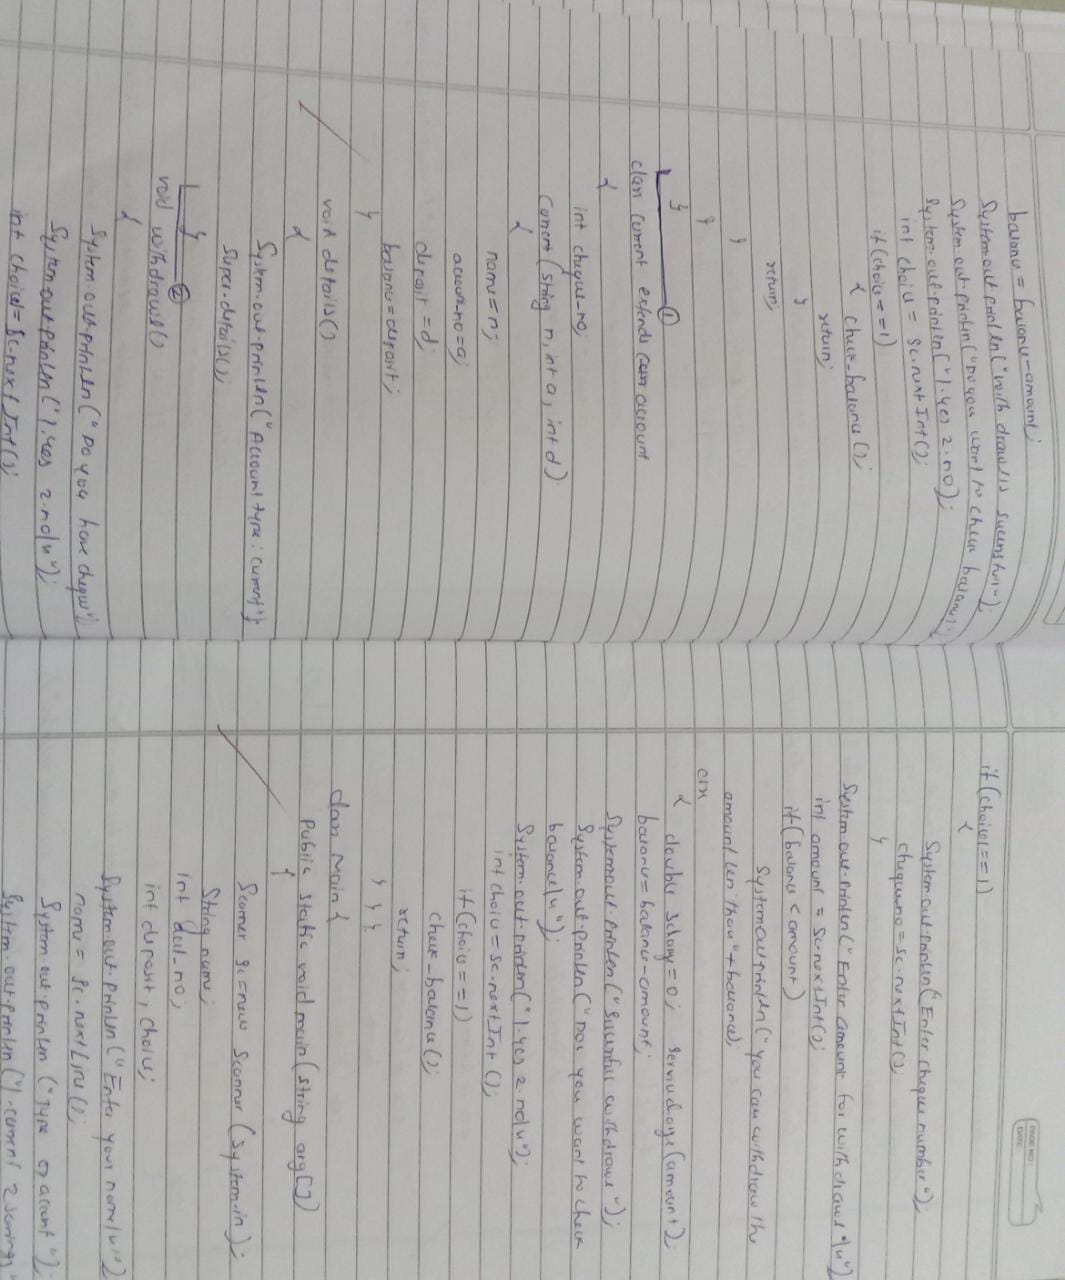 balance = balance-amount;
System.out.println("withdrawl is
System.out.println("Do you want to check balance");
System.out.println("1.yes 2.no);
int choice = sc.nextInt();
if(choice==1)
{ check_balance();
return;
}
return;
}
}
} ①
class current extends account
{
int cheque_no;
Current(String n, int a, int d)
{
name=n;
accout-no=a;
deposit=d;
balance=deposit;
}
void details()
{
System.out.println("Account type: current");
super.details();
} ②
void withdrawl()
{
System.out.println("Do you have cheque");
System.out.println("1.yes 2.no\n");
int choice1=sc.nextInt();
if(choice1==1)
{
System.out.println("Enter cheque number");
chequeno=sc.nextInt();
}
System.out.println("Enter amount for withdrawl \n")
int amount = sc.nextInt();
if(balance < amount)
System.out.println("you can withdraw the
amount less than"+balance);
else
{ double =0; (amount);
balance=balance-amount;
System.out.println(" withdrawl");
System.out.println("Do you want to check
balance\n");
System.out.println("1.yes 2.no\n");
int choice=sc.nextInt();
if(choice==1)
check_balance();
return;
} } }
class Main {
Public static void main(String arg[])
{
Scanner sc=new Scanner(System.in);
String name;
int _no;
int deposit, choice;
System.out.println("Enter your name\n")
name = sc.nextLine();
System.out.println("Type of account");
System.out.println("1.current 2.savings